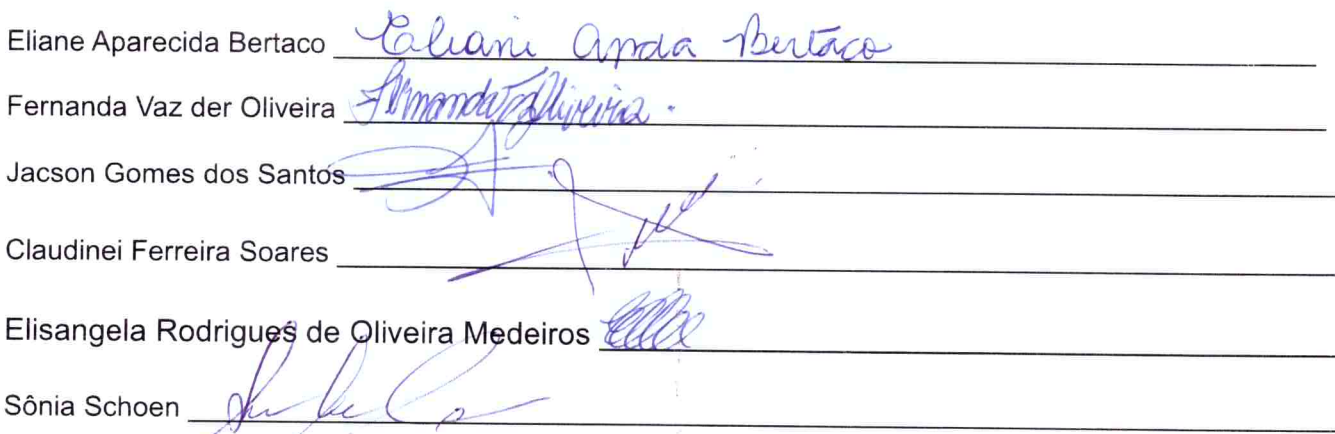 Eliane Aparecida Bertaco Eliani Apda Bertaco
Fernanda Vaz der Oliveira Fernanda V Oliveira.
Jacson Gomes dos Santos
Claudinei Ferreira Soares
Elisangela Rodrigues de Oliveira Medeiros
Sônia Schoen